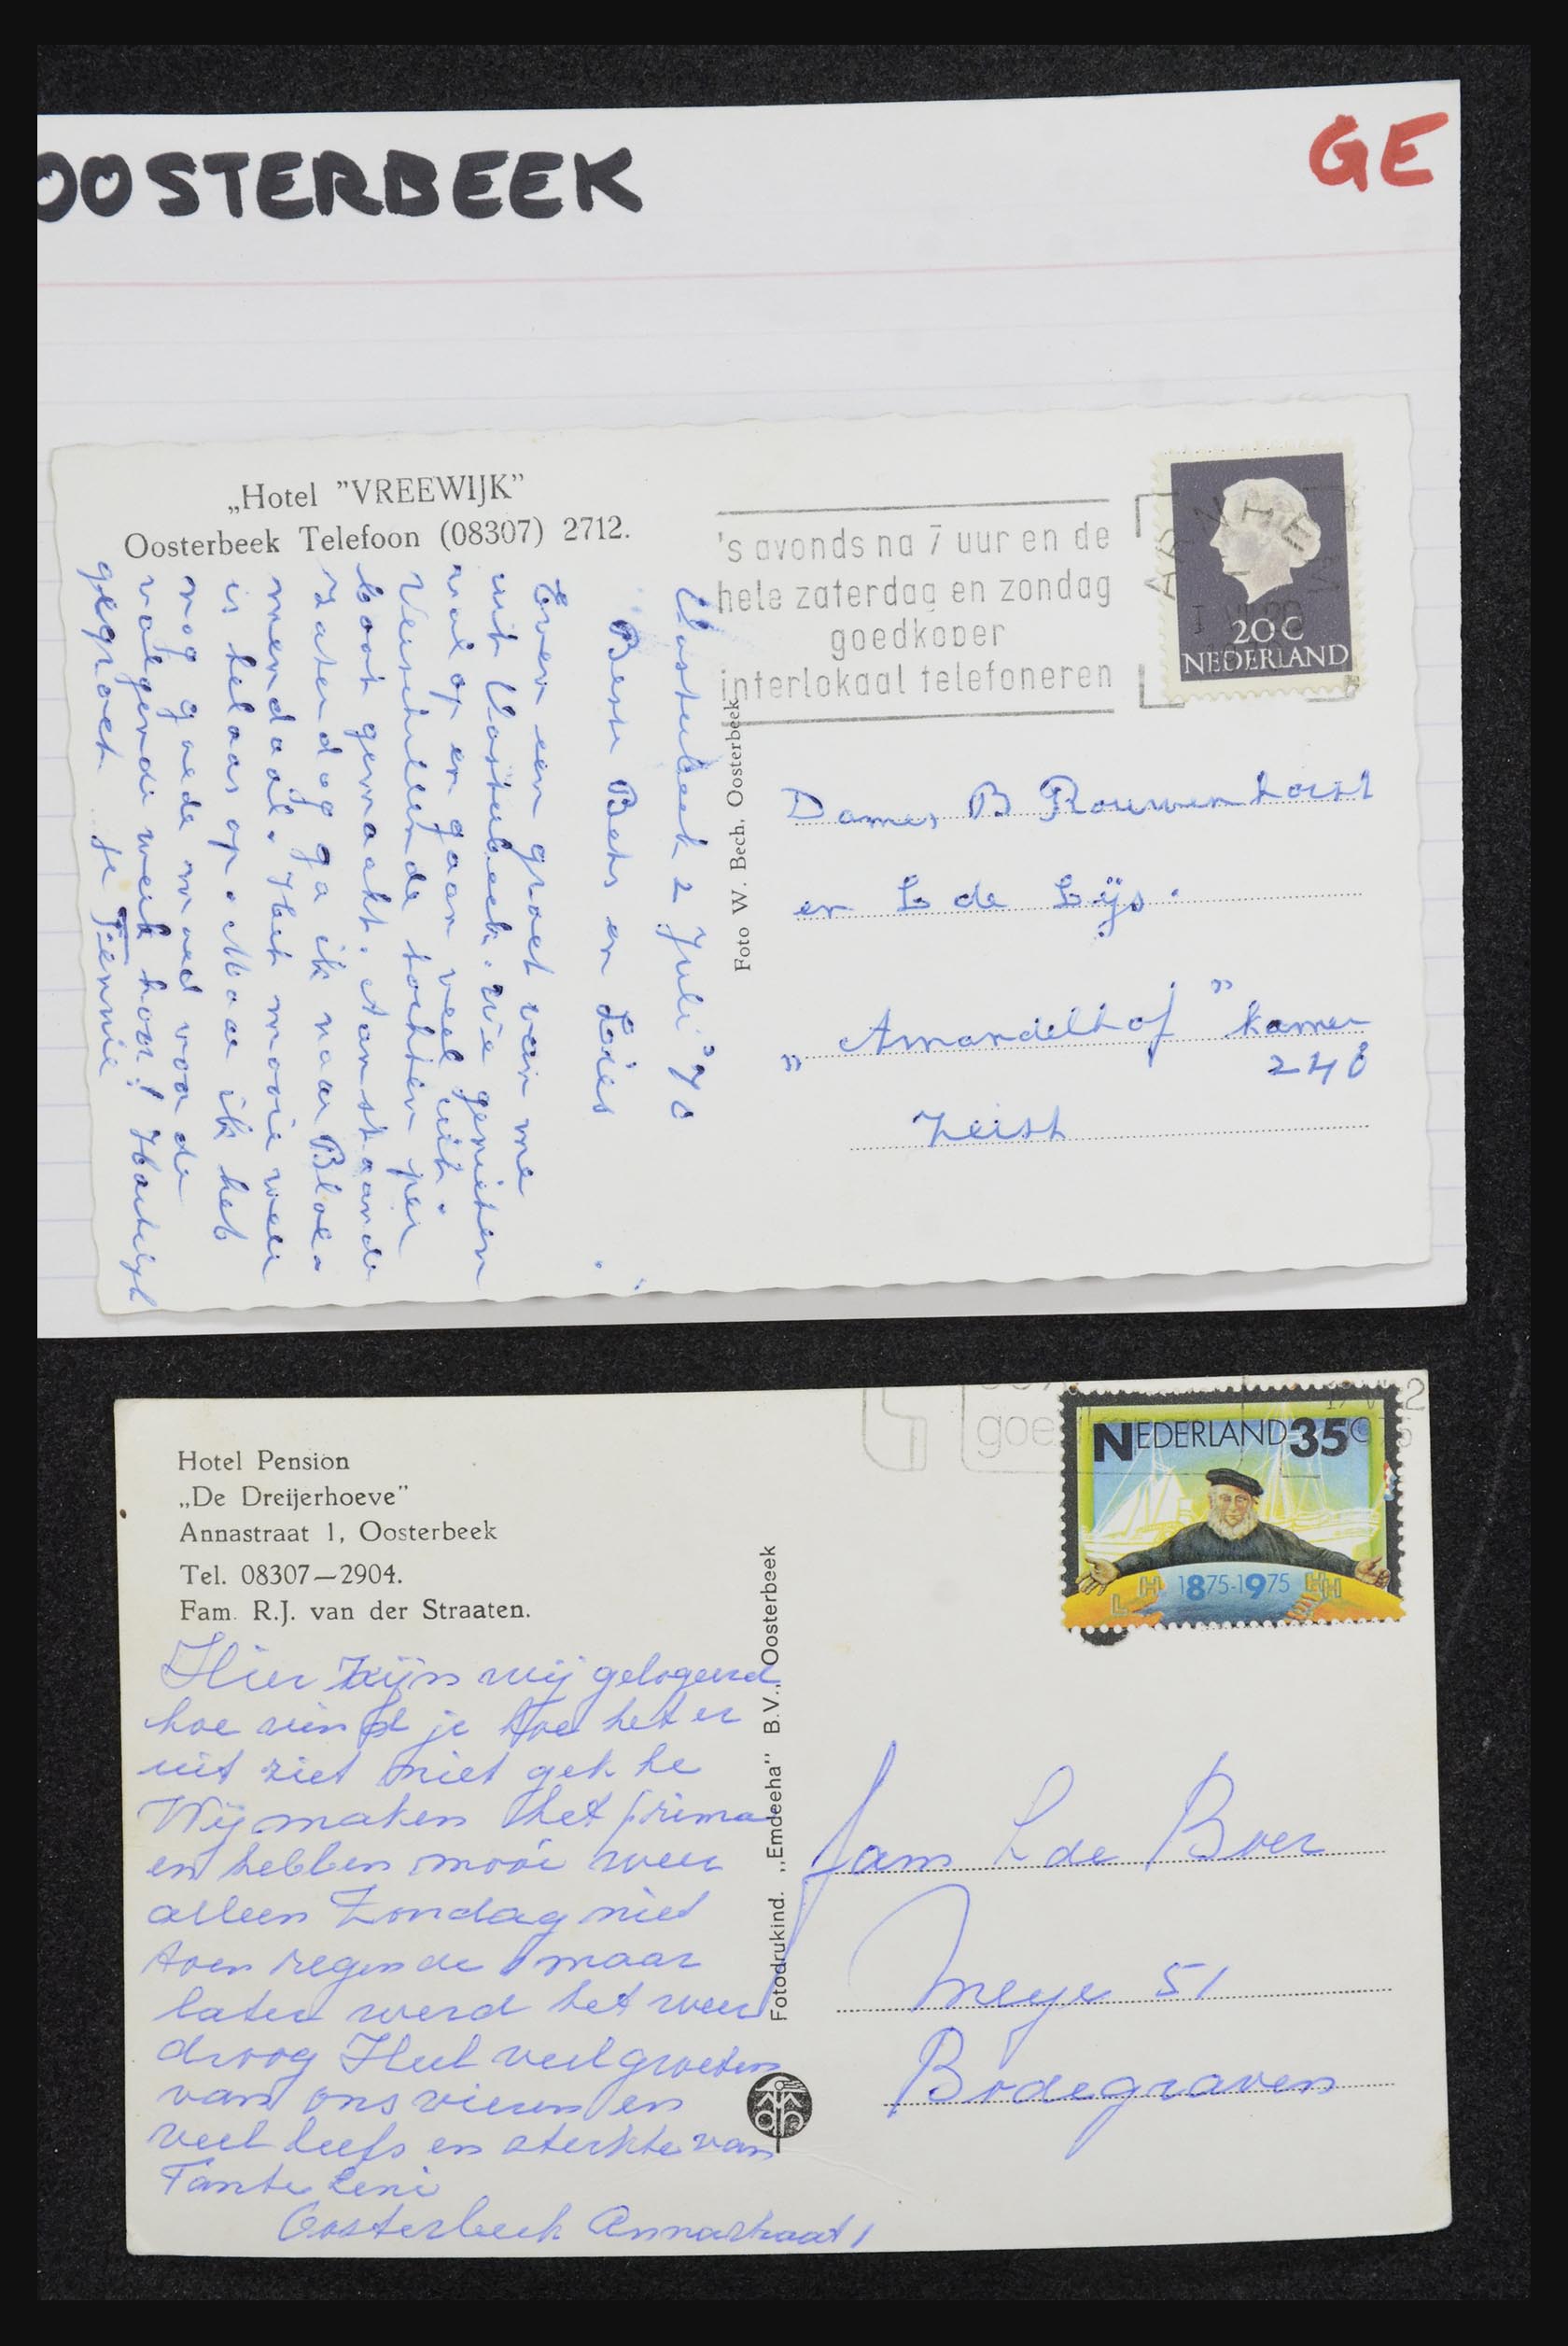 OOSTERBEEK
GE
„Hotel "VREEWIJK"
Oosterbeek Telefoon (08307) 2712.
's avonds na 7 uur en de
hele zaterdag en zondag
goedkoper
interlokaal telefoneren
ARNHEM
20 C
NEDERLAND
Oosterbeek 2 Juli "70
Beste Bets en Loies
Even een groet van me
uit Oosterbeek. We genieten
volop en gaan veel uit.
Verschillende tochten per
boot gemaakt. Aanstaande
Zaterdag ga ik naar Bloe-
mendaal. Het mooie weer
is helaas op. Maar ik heb
nog goede moed voor de
volgende week hoor! Hartelijk
gegroet je Tiennie
Foto W. Bech, Oosterbeek
Dames B Rouwenhorst
en L de Lijs.
„ Amandelhof " kamer
240
Zeist
Hotel Pension
„De Dreijerhoeve"
Annastraat 1, Oosterbeek
Tel. 08307—2904.
Fam. R.J. van der Straaten.
Hier zijn wij gelogeerd
hoe vind je hoe het er
uit ziet niet gek he
Wij maken het prima
en hebben mooi weer
alleen Zondag niet
toen regende maar
later werd het weer
droog Heel veel groeten
van ons vieren en
veel liefs en sterkte van
Tante Leni
Oosterbeek Annastraat 1
Fotodrukind. „Emdeeha" B.V., Oosterbeek
goe
NEDERLAND 35C
LH 1875-1975 HH
Fam L de Boer
Meije 51
Bodegraven